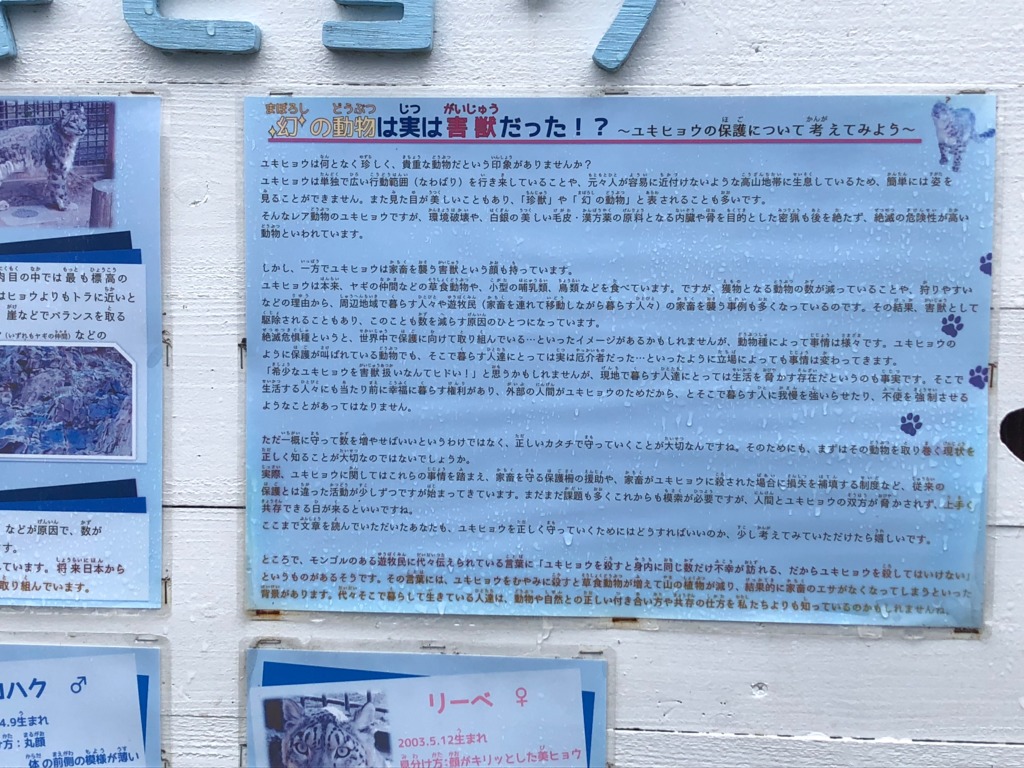 ユキヒョウ
幻の動物は実は害獣だった!？ ～ユキヒョウの保護について考えてみよう～
ユキヒョウは何となく珍しく、貴重な動物だという印象がありませんか？
ユキヒョウは単独で広い行動範囲（なわばり）を行き来していることや、元々人が容易に近付けないような高山地帯に生息しているため、簡単には姿を
見ることができません。また見た目が美しいこともあり、「珍獣」や「幻の動物」と表されることも多いです。
そんなレア動物のユキヒョウですが、環境破壊や、白銀の美しい毛皮・漢方薬の原料となる内臓や骨を目的とした密猟も後を絶たず、絶滅の危険性が高い
動物といわれています。
しかし、一方でユキヒョウは家畜を襲う害獣という顔も持っています。
ユキヒョウは本来、ヤギの仲間などの草食動物や、小型の哺乳類、鳥類などを食べています。ですが、獲物となる動物の数が減っていることや、狩りやすい
などの理由から、周辺地域で暮らす人々や遊牧民（家畜を連れて移動しながら暮らす人々）の家畜を襲う事例も多くなっているのです。その結果、害獣として
駆除されることもあり、このことも数を減らす原因のひとつになっています。
絶滅危惧種というと、世界中で保護に向けて取り組んでいる…といったイメージがあるかもしれませんが、動物種によって事情は様々です。ユキヒョウの
ように保護が叫ばれている動物でも、そこで暮らす人達にとっては実は厄介者だった…といったように立場によっても事情は変わってきます。
「希少なユキヒョウを害獣扱いなんてヒドい！」と思うかもしれませんが、現地で暮らす人達にとっては生活を脅かす存在だというのも事実です。そこで
生活する人々にも当たり前に幸福に暮らす権利があり、外部の人間がユキヒョウのためだから、とそこで暮らす人に我慢を強いらせたり、不便を強制させる
ようなことがあってはなりません。
ただ一概に守って数を増やせばいいというわけではなく、正しいカタチで守っていくことが大切なんですね。そのためにも、まずはその動物を取り巻く現状を
正しく知ることが大切なのではないでしょうか。
実際、ユキヒョウに関してはこれらの事情を踏まえ、家畜を守る保護柵の援助や、家畜がユキヒョウに殺された場合に損失を補填する制度など、従来の
保護とは違った活動が少しずつですが始まってきています。まだまだ課題も多くこれからも模索が必要ですが、人間とユキヒョウの双方が脅かされず、上手く
共存できる日が来るといいですね。
ここまで文章を読んでいただいたあなたも、ユキヒョウを正しく守っていくためにはどうすればいいのか、少し考えてみていただけたら嬉しいです。
ところで、モンゴルのある遊牧民に代々伝えられている言葉に「ユキヒョウを殺すと身内に同じ数だけ不幸が訪れる、だからユキヒョウを殺してはいけない」
というものがあるそうです。その言葉には、ユキヒョウをむやみに殺すと草食動物が増えて山の植物が減り、結果的に家畜のエサがなくなってしまうといった
背景があります。代々そこで暮らして生きている人達は、動物や自然との正しい付き合い方や共存の仕方を私たちよりも知っているのかもしれませんね。
肉目の中では最も標高の
はヒョウよりもトラに近いと
崖などでバランスを取る
（いずれもヤギの仲間）などの
などが原因で、数が
す。
ています。将来日本から
取り組んでいます。
ハク ♂
4.9生まれ
け方：丸顔
体の前側の模様が薄い
リーベ ♀
2003.5.12生まれ
見分け方：顔がキリッとした美ヒョウ